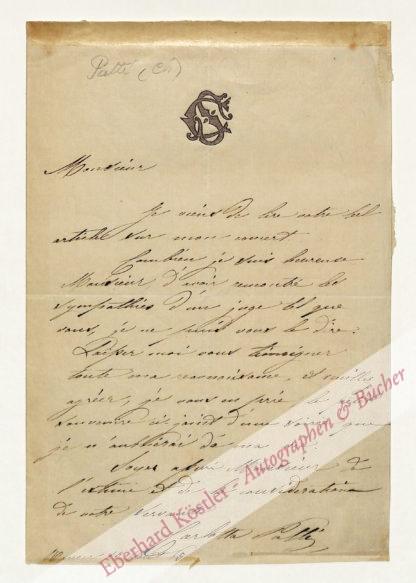 Patti (C.)
Monsieur
Je viens de lire votre bel
article sur mon concert
Combien je suis heureuse
Monsieur d'avoir remontré les
sympathies d'un juge tel que
vous, je ne puis vous le dire:
Laisser moi vous témoigner
toute ma reconnaissance, et veuillez
agréer, je vous en prie le petit
souvenir ci-joint d'une soirée que
je n'oublierai de ma
Soyez Monsieur de
l'estime et de considération
de votre servante
Carlotta Patti
Eberhard Köstler - Autographen & Bücher